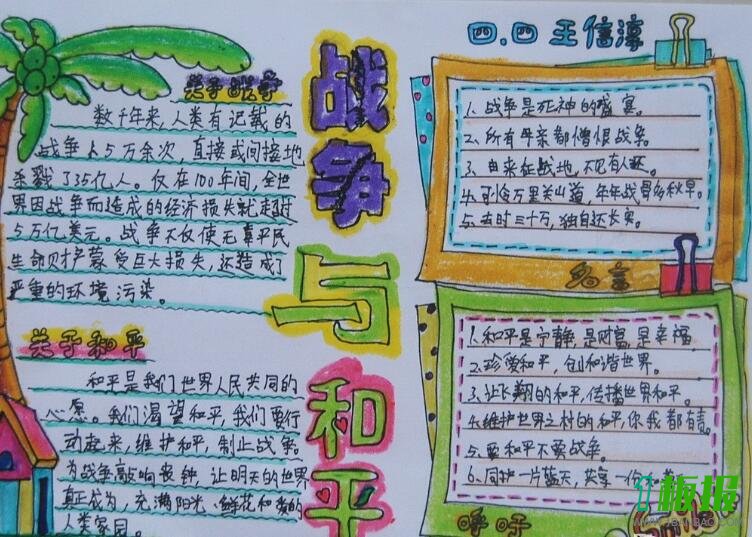 四.四王信淳
关于战争
数千年来,人类有记载的
战争上5万余次,直接或间接地
杀戮了35亿人。仅在100年间,全世
界因战争而造成的经济损失就超过
5万亿美元。战争不仅使无辜平民
生命财产蒙受巨大损失,还造成了
严重的环境污染。
关于和平
和平是我们世界人民共同的
心愿。我们渴望和平,我们要行
动起来,维护和平,制止战争。
为战争敲响丧钟,让明天的世界
真正成为,充满阳光、鲜花和爱的
人类家园。
战争与和平
1.战争是死神的盛宴。
2.所有母亲都憎恨战争。
3.由来征战地,不见有人还。
4.可怜万里关山道,年年战骨多秋草。
5.去时三十万,独自还长安。
名言
1.和平是宁静,是财富,是幸福
2.珍爱和平,创和谐世界。
3.让飞翔的和平,传播世界和平。
4.维护世界之村的和平,你我都有责。
5.要和平不要战争。
6.同护一片蓝天,共享一份
呼吁
板报
WWW.7BANBAO.COM